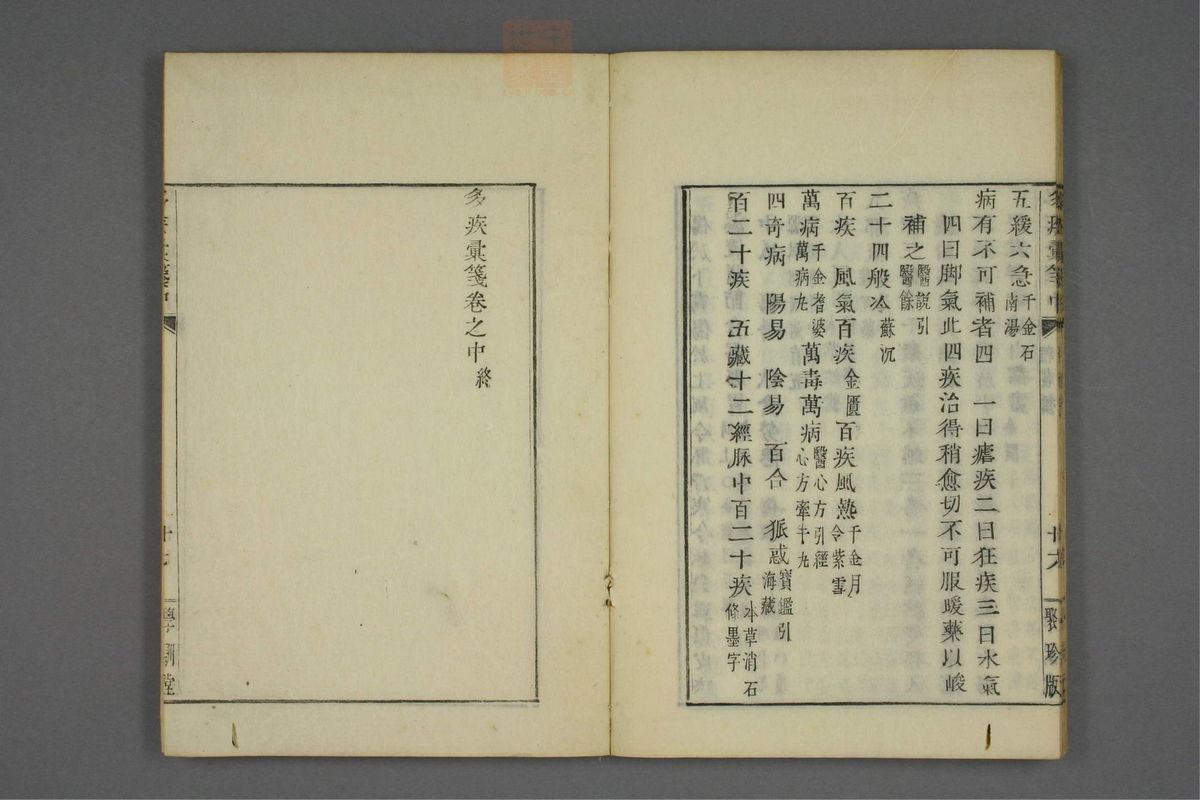 五緩六急千金石南湯
病有不可補者四一曰瘧疾二曰狂疾三曰水氣
四曰脚氣此四疾治得稍愈切不可服暖藥以峻
補之醫說引醫餘
二十四般冷蘇沉
百疾　風氣百疾金匱百疾風熱千金月令紫雪
萬病千金耆婆萬病丸萬毒萬病醫心方引經心方牽牛丸
四奇病　陽易　陰易　百合　狐惑寶鑑引海藏
百二十疾　五藏十二經脉中百二十疾本草消石條墨字
聚珍版
多疾彙箋卷之中終
學訓堂